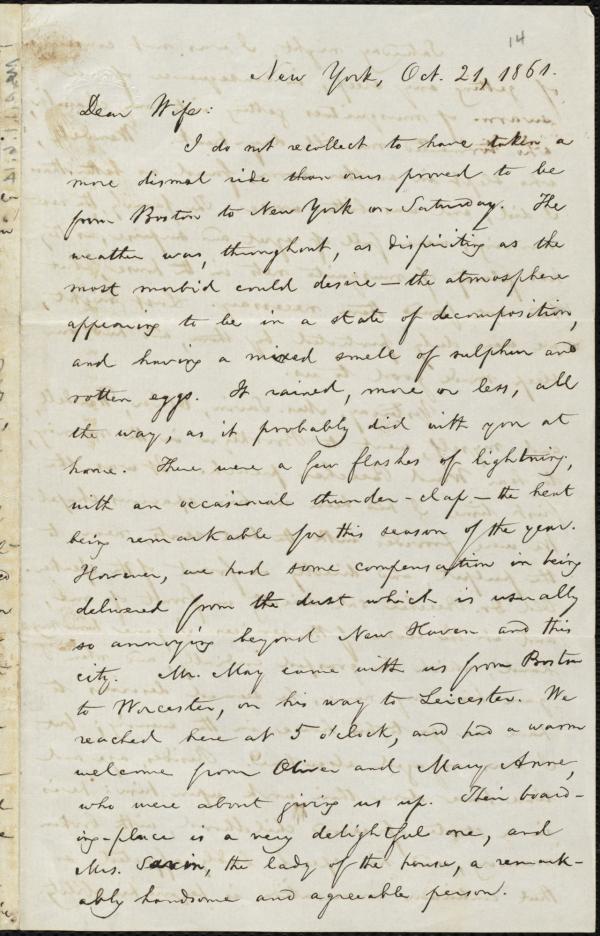 14
New York, Oct. 21, 1861.
Dear Wife:
I do not recollect to have taken a
more dismal ride than ours proved to be
from Boston to New York on Saturday. The
weather was, throughout, as dispiriting as the
most morbid could desire — the atmosphere
appearing to be in a state of decomposition,
and having a mixed smell of sulphur and
rotten eggs. It rained, more or less, all
the way, as it probably did with you at
home. There were a few flashes of lightning,
with an occasional thunder-clap — the heat
being remarkable for this season of the year.
However, we had some compensation in being
delivered from the dust which is usually
so annoying beyond New Haven and this
city. Mr. May came with us from Boston
to Worcester, on his way to Leicester. We
reached here at 5 o'clock, and had a warm
welcome from Oliver and Mary Anne,
who were about giving us up. Their board-
ing-place is a very delightful one, and
Mrs. Savin, the lady of the house, a remark-
ably handsome and agreeable person.